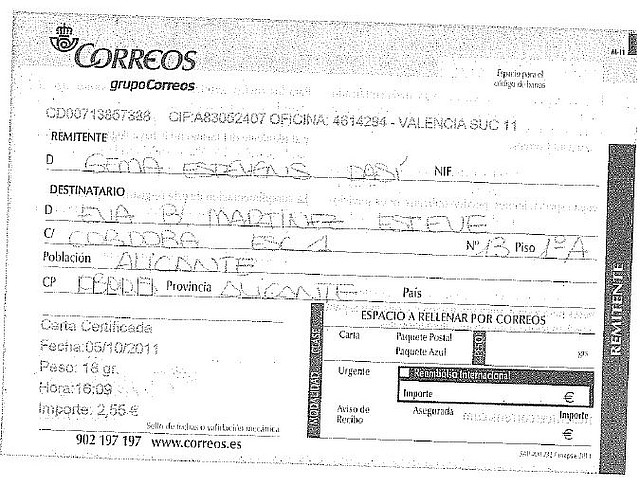 CORREOS
AR-11
grupoCorreos
Espacio para el
código de barras
CD00713857388 CIF:A83052407 OFICINA: 4614294 - VALENCIA SUC 11
REMITENTE
D GEMA ESTEVENS DASÍ NIF.
DESTINATARIO
D EVA Bl MARTINEZ ESTEVE
C/ CORDOBA ESC 1 Nº 13 Piso 1ºA
Población ALICANTE
CP Provincia ALICANTE País
REMITENTE
Carta Certificada
Fecha:05/10/2011
Peso: 18 gr.
Hora:16:09
Importe: 2,55 €
Sello de fechas o validación mecánica
902 197 197 www.correos.es
ESPACIO A RELLENAR POR CORREOS
MODALIDAD CLASE
Carta Paquete Postal
Paquete Azul
PESO
grs
Urgente Reembolso Internacional
Importe €
Aviso de Recibo Asegurada Importe
€